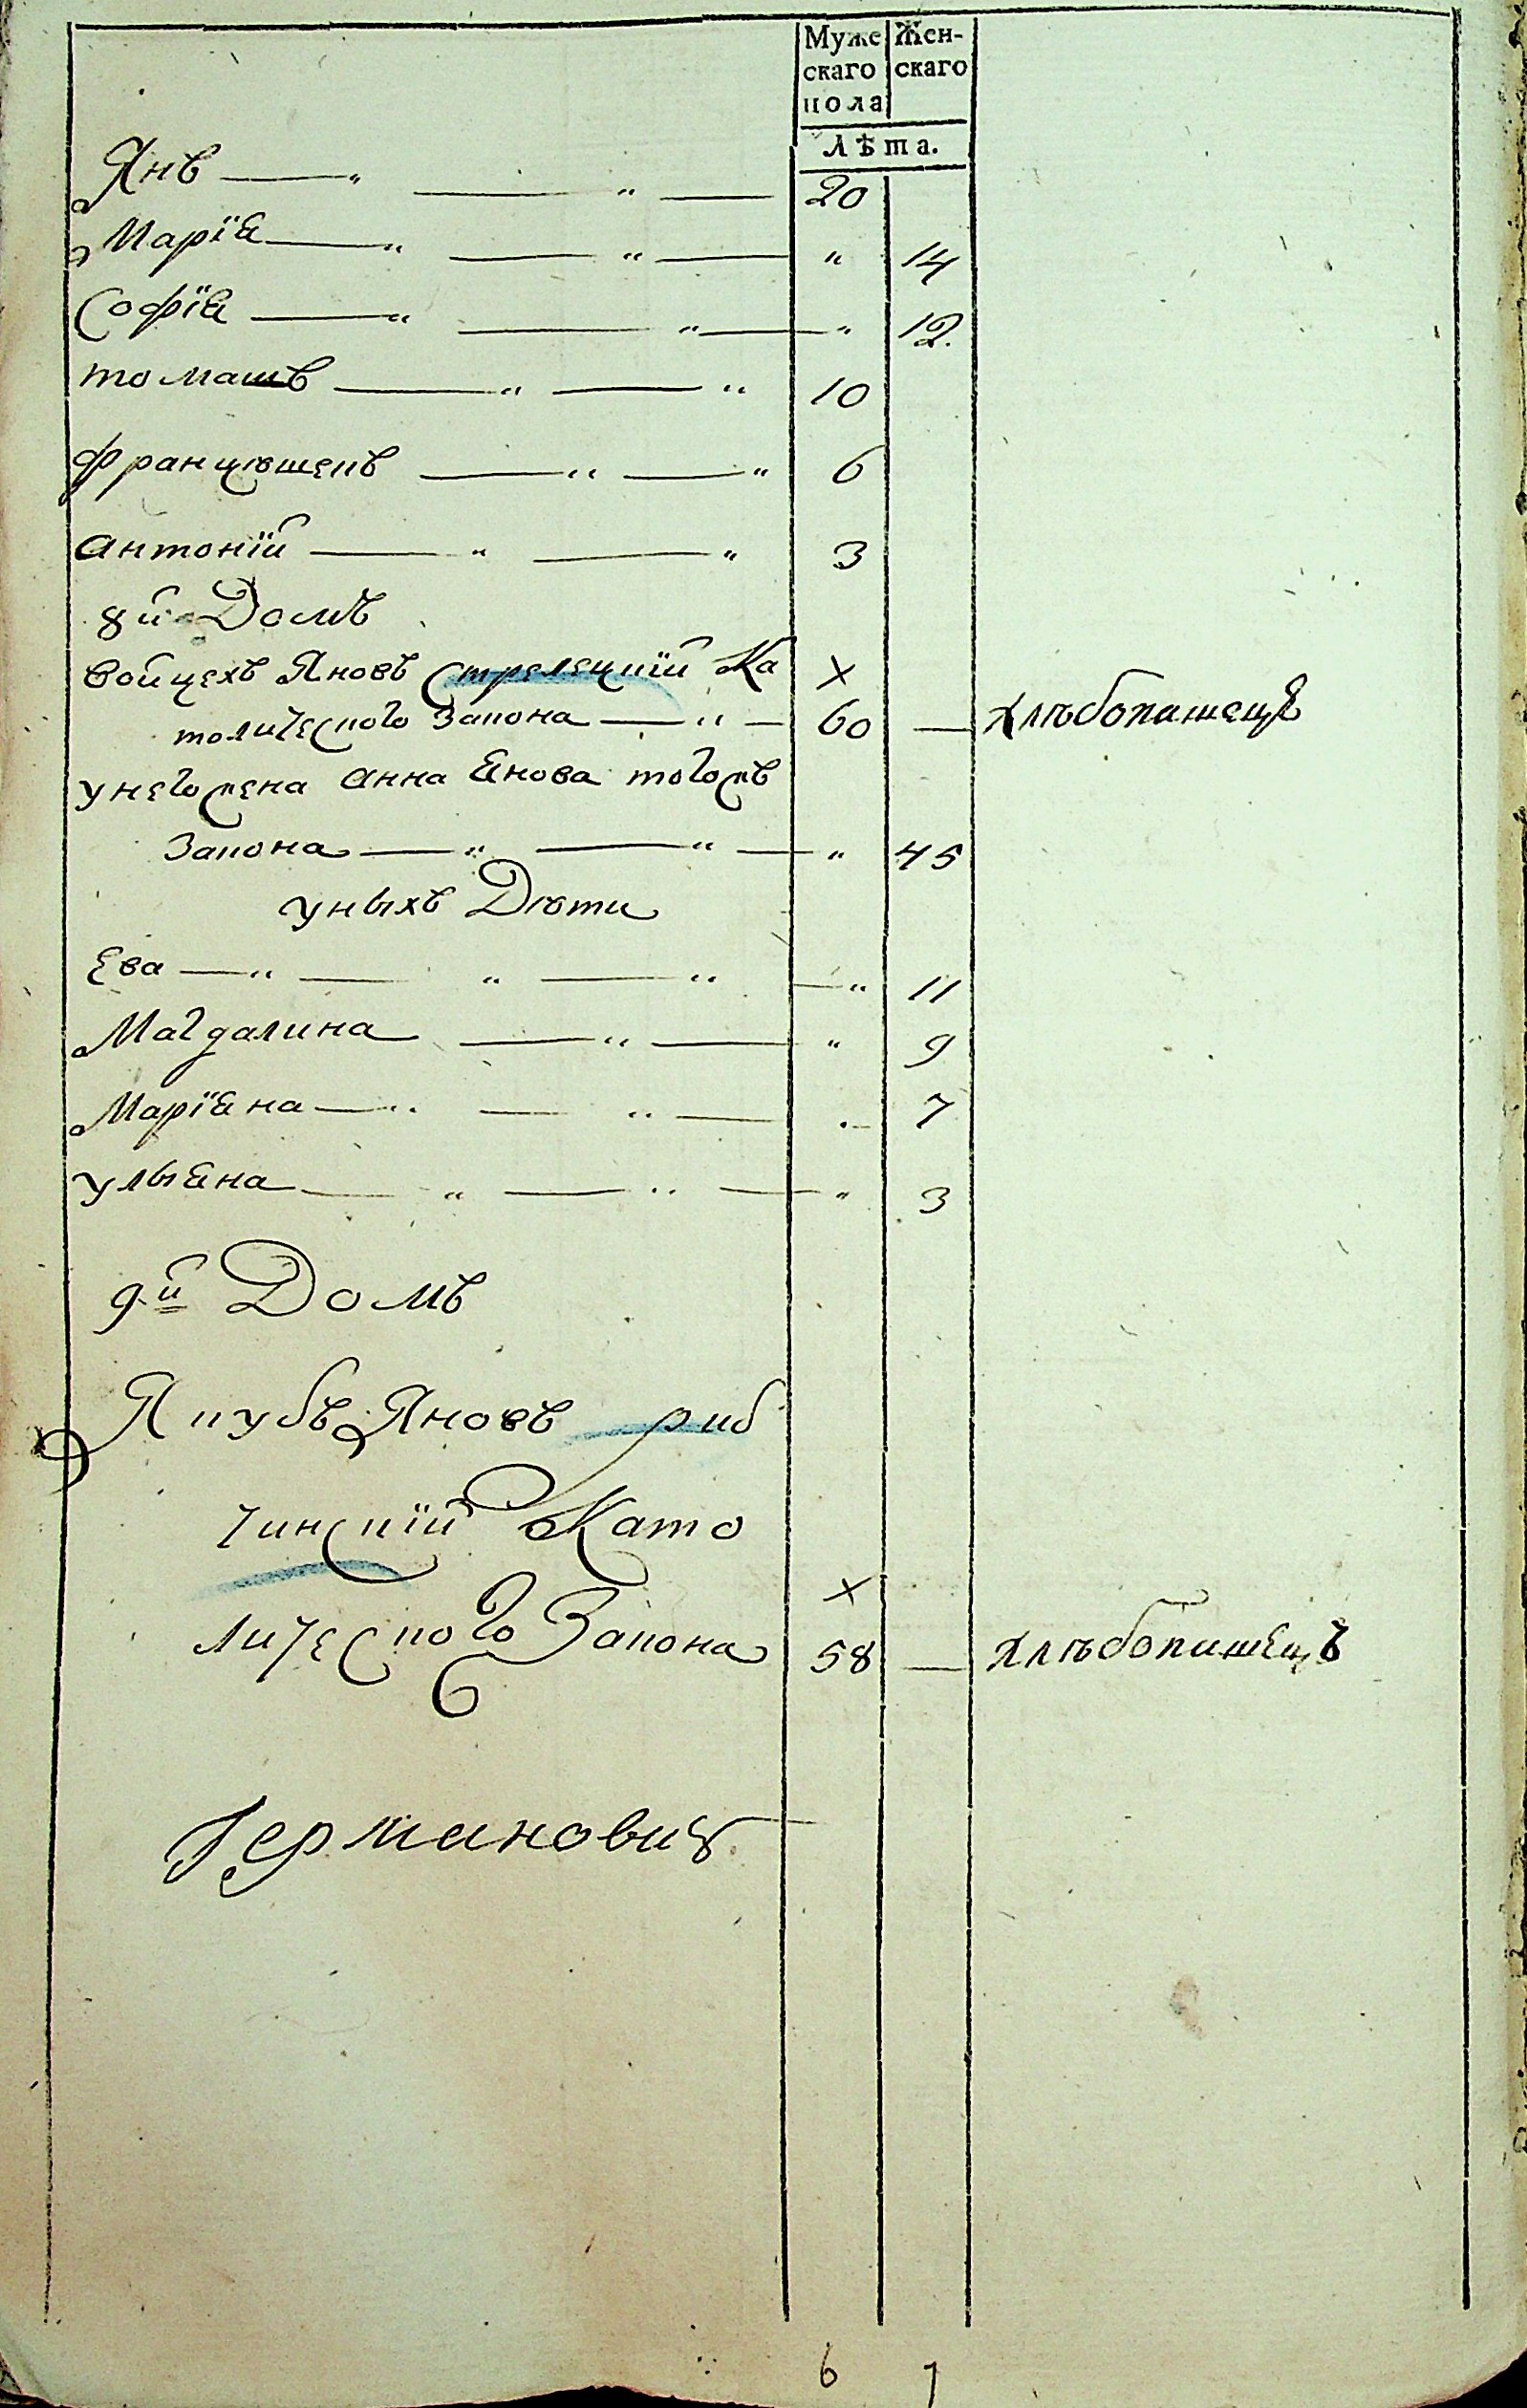 Муже Жен-
скаго скаго
пола
Лѣта.
Янъ — „ — „ — 20
Марія — „ — „ — „ 14
Софія — „ — „ — „ 12.
томашъ — „ — „ 10
францѣшекъ — „ — „ 6
антоній — „ — „ 3
8й Домъ
войцехъ Яновъ Стрелецкій Ка х
толического Закона — „ — 60 — хлѣбопашецъ
унего жена анна Янова тогожъ
Закона — „ — „ — „ 45
уныхъ Дѣти
Ева — „ — „ — „ — „ 11
Магдалина — „ — „ 9
Маріяна — „ — „ — . 7
ульяна — „ — „ — „ 3
9й Домъ
Якубъ Яновъ риб
чинскій Като
х
лического Закона 58 — хлѣбопашецъ
Германович
6 7